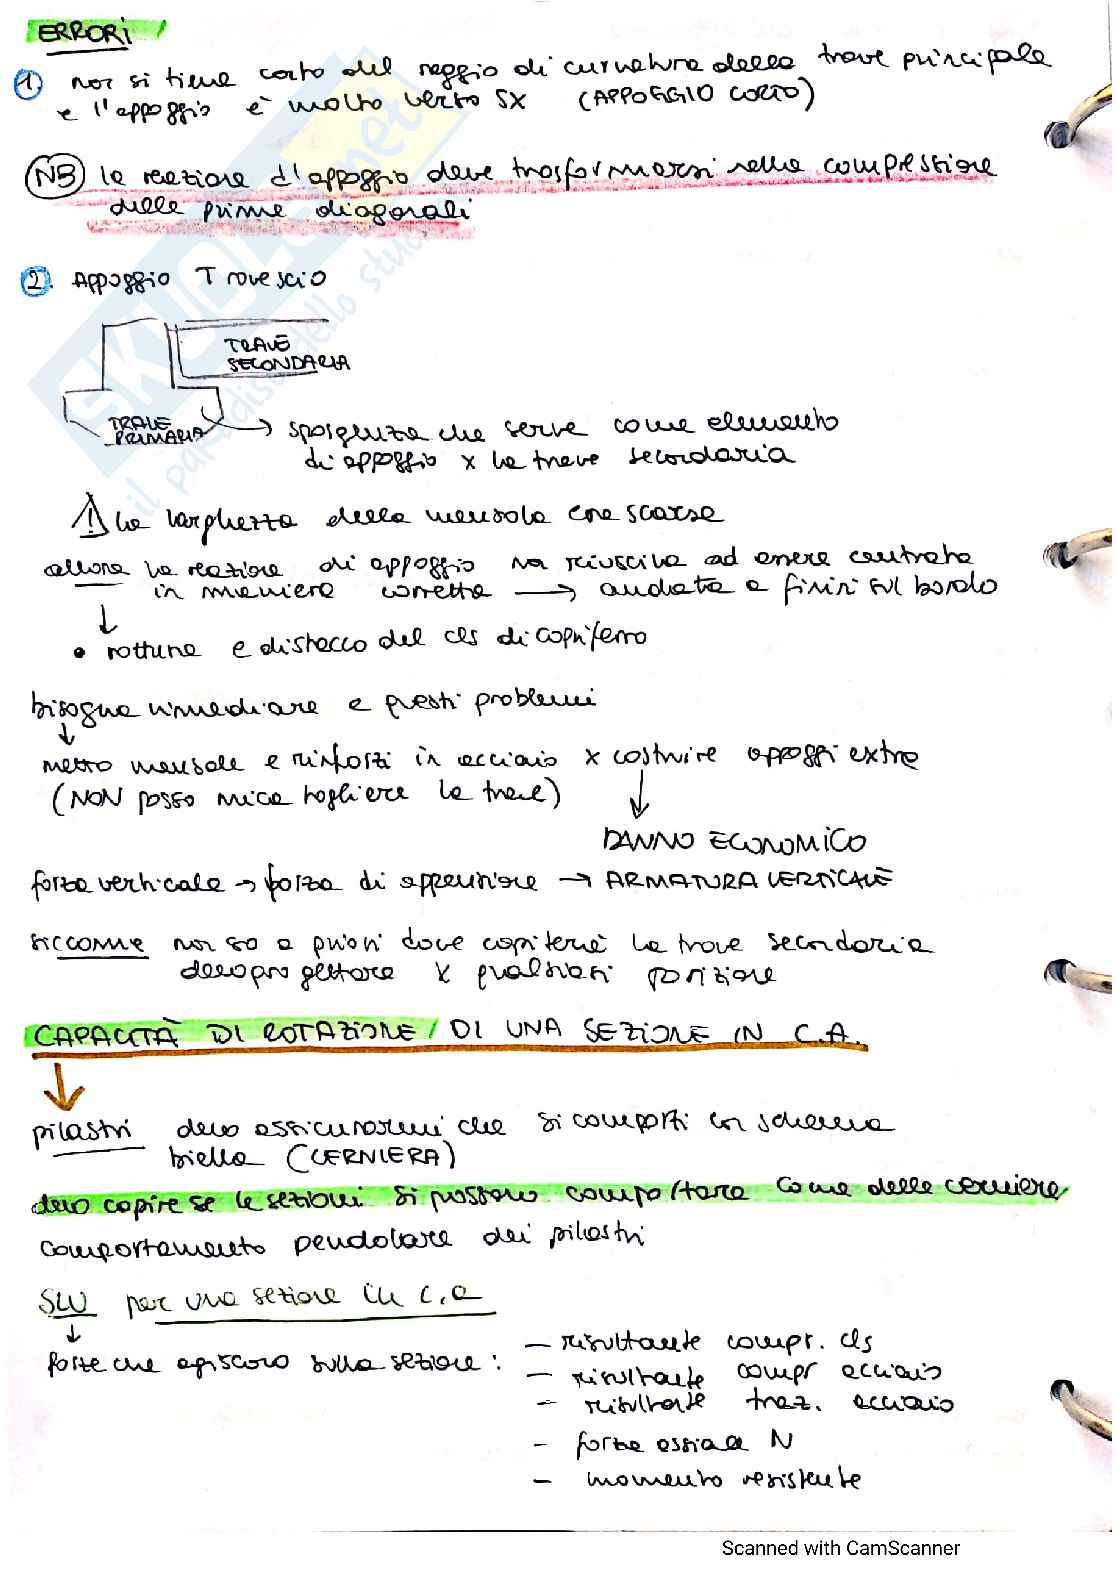 ERRORI
1. non si tiene conto del raggio di curvatura della trave principale
e l'appoggio è molto verso SX (APPOGGIO CORTO)
NB la reazione d'appoggio deve trasformarsi nella compressione
delle prime diagonali
2. Appoggio Trovescio
TRAVE
SECONDARIA
TRAVE
PRIMARIA
→ sporgenza che serve come elemento
di appoggio x la trave secondaria
⚠ la larghezza della mensola era scarsa
allora la reazione di appoggio non riusciva ad essere centrata
in maniera corretta → andata a finire sul bordo
↓
• rottura e distacco del cls di copriferro
bisogna rimediare a questi problemi
↓
metto mensole e rinforzi in acciaio x costruire appoggi extra
(NON posso mica togliere la trave)
↓
DANNO ECONOMICO
forza verticale → forza di appensione → ARMATURA VERTICALE
siccome non so a priori dove capiterà la trave secondaria
devo progettare x qualsiasi posizione
CAPACITÀ DI ROTAZIONE / DI UNA SEZIONE IN C.A.
↓
pilastri devo assicurarmi che si comporti con schema
biella (CERNIERA)
devo capire se le sezioni si possono comportare come delle cerniere
comportamento pendolare dei pilastri
SLU per una sezione in c.a
↓
forze che agiscono sulla sezione:
- risultante compr. cls
- risultante compr acciaio
- risultante traz. acciaio
- forza assiale N
- momento resistente
SKUOLA.net
il paradiso dello stud
Scanned with CamScanner